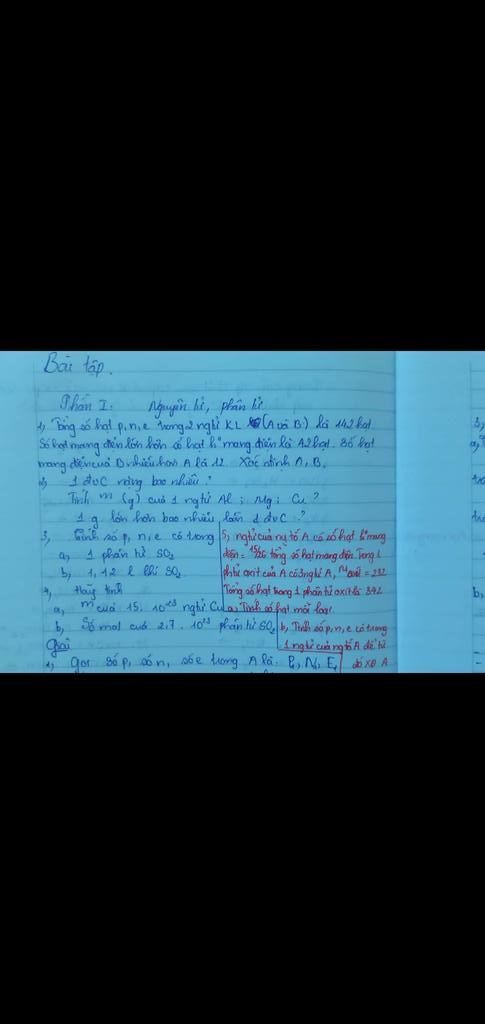 Bài tập.
Phần I: Nguyên tử, phân tử
1, Tổng số hạt p, n, e trong 2 ngtử KL (A và B) là 142 hạt
Số hạt mang điện lớn hơn số hạt k° mang điện là 42 hạt. Số hạt
mang điện của B nhiều hơn A là 12. Xác định A, B.
2, 1 đvC nặng bao nhiêu?
Tính m (g) của 1 ngtử Al; Mg; Cu?
1 g lớn hơn bao nhiêu lần 1 đvC?
3, Tính số p, n, e có trong
a, 1 phân tử SO2
b, 1,12 l khí SO2
4, Hãy tính
a, m của 15. 10^-23 ngtử Cu
b, Số mol của 2,7. 10^23 phân tử SO2
5, ngtử của ng tố A có số hạt k° mang
điện = 15/26 tổng số hạt mang điện. Trong 1
phtử oxit của A có 3 ngtử A, M oxit = 232
Tổng số hạt trong 1 phân tử oxit là 342
a, Tính số hạt mỗi loại
b, Tính số p, n, e có trong
1 ngtử của ng tố A để từ
đó XĐ A
Giải
1, Gọi số p, số n, số e trong A là: P1, N1, E1